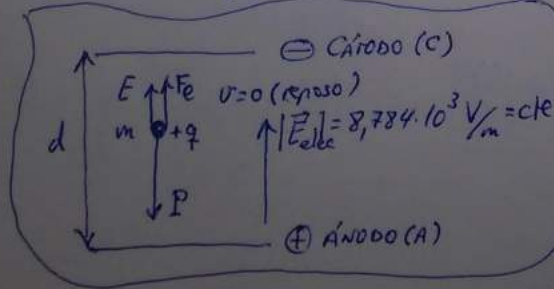 ⊖ CÁTODO (C)
E Fe v=0 (reposo)
d m +q |E⃗elec|=8,784·10³ V/m=cte
P
⊕ ÁNODO (A)